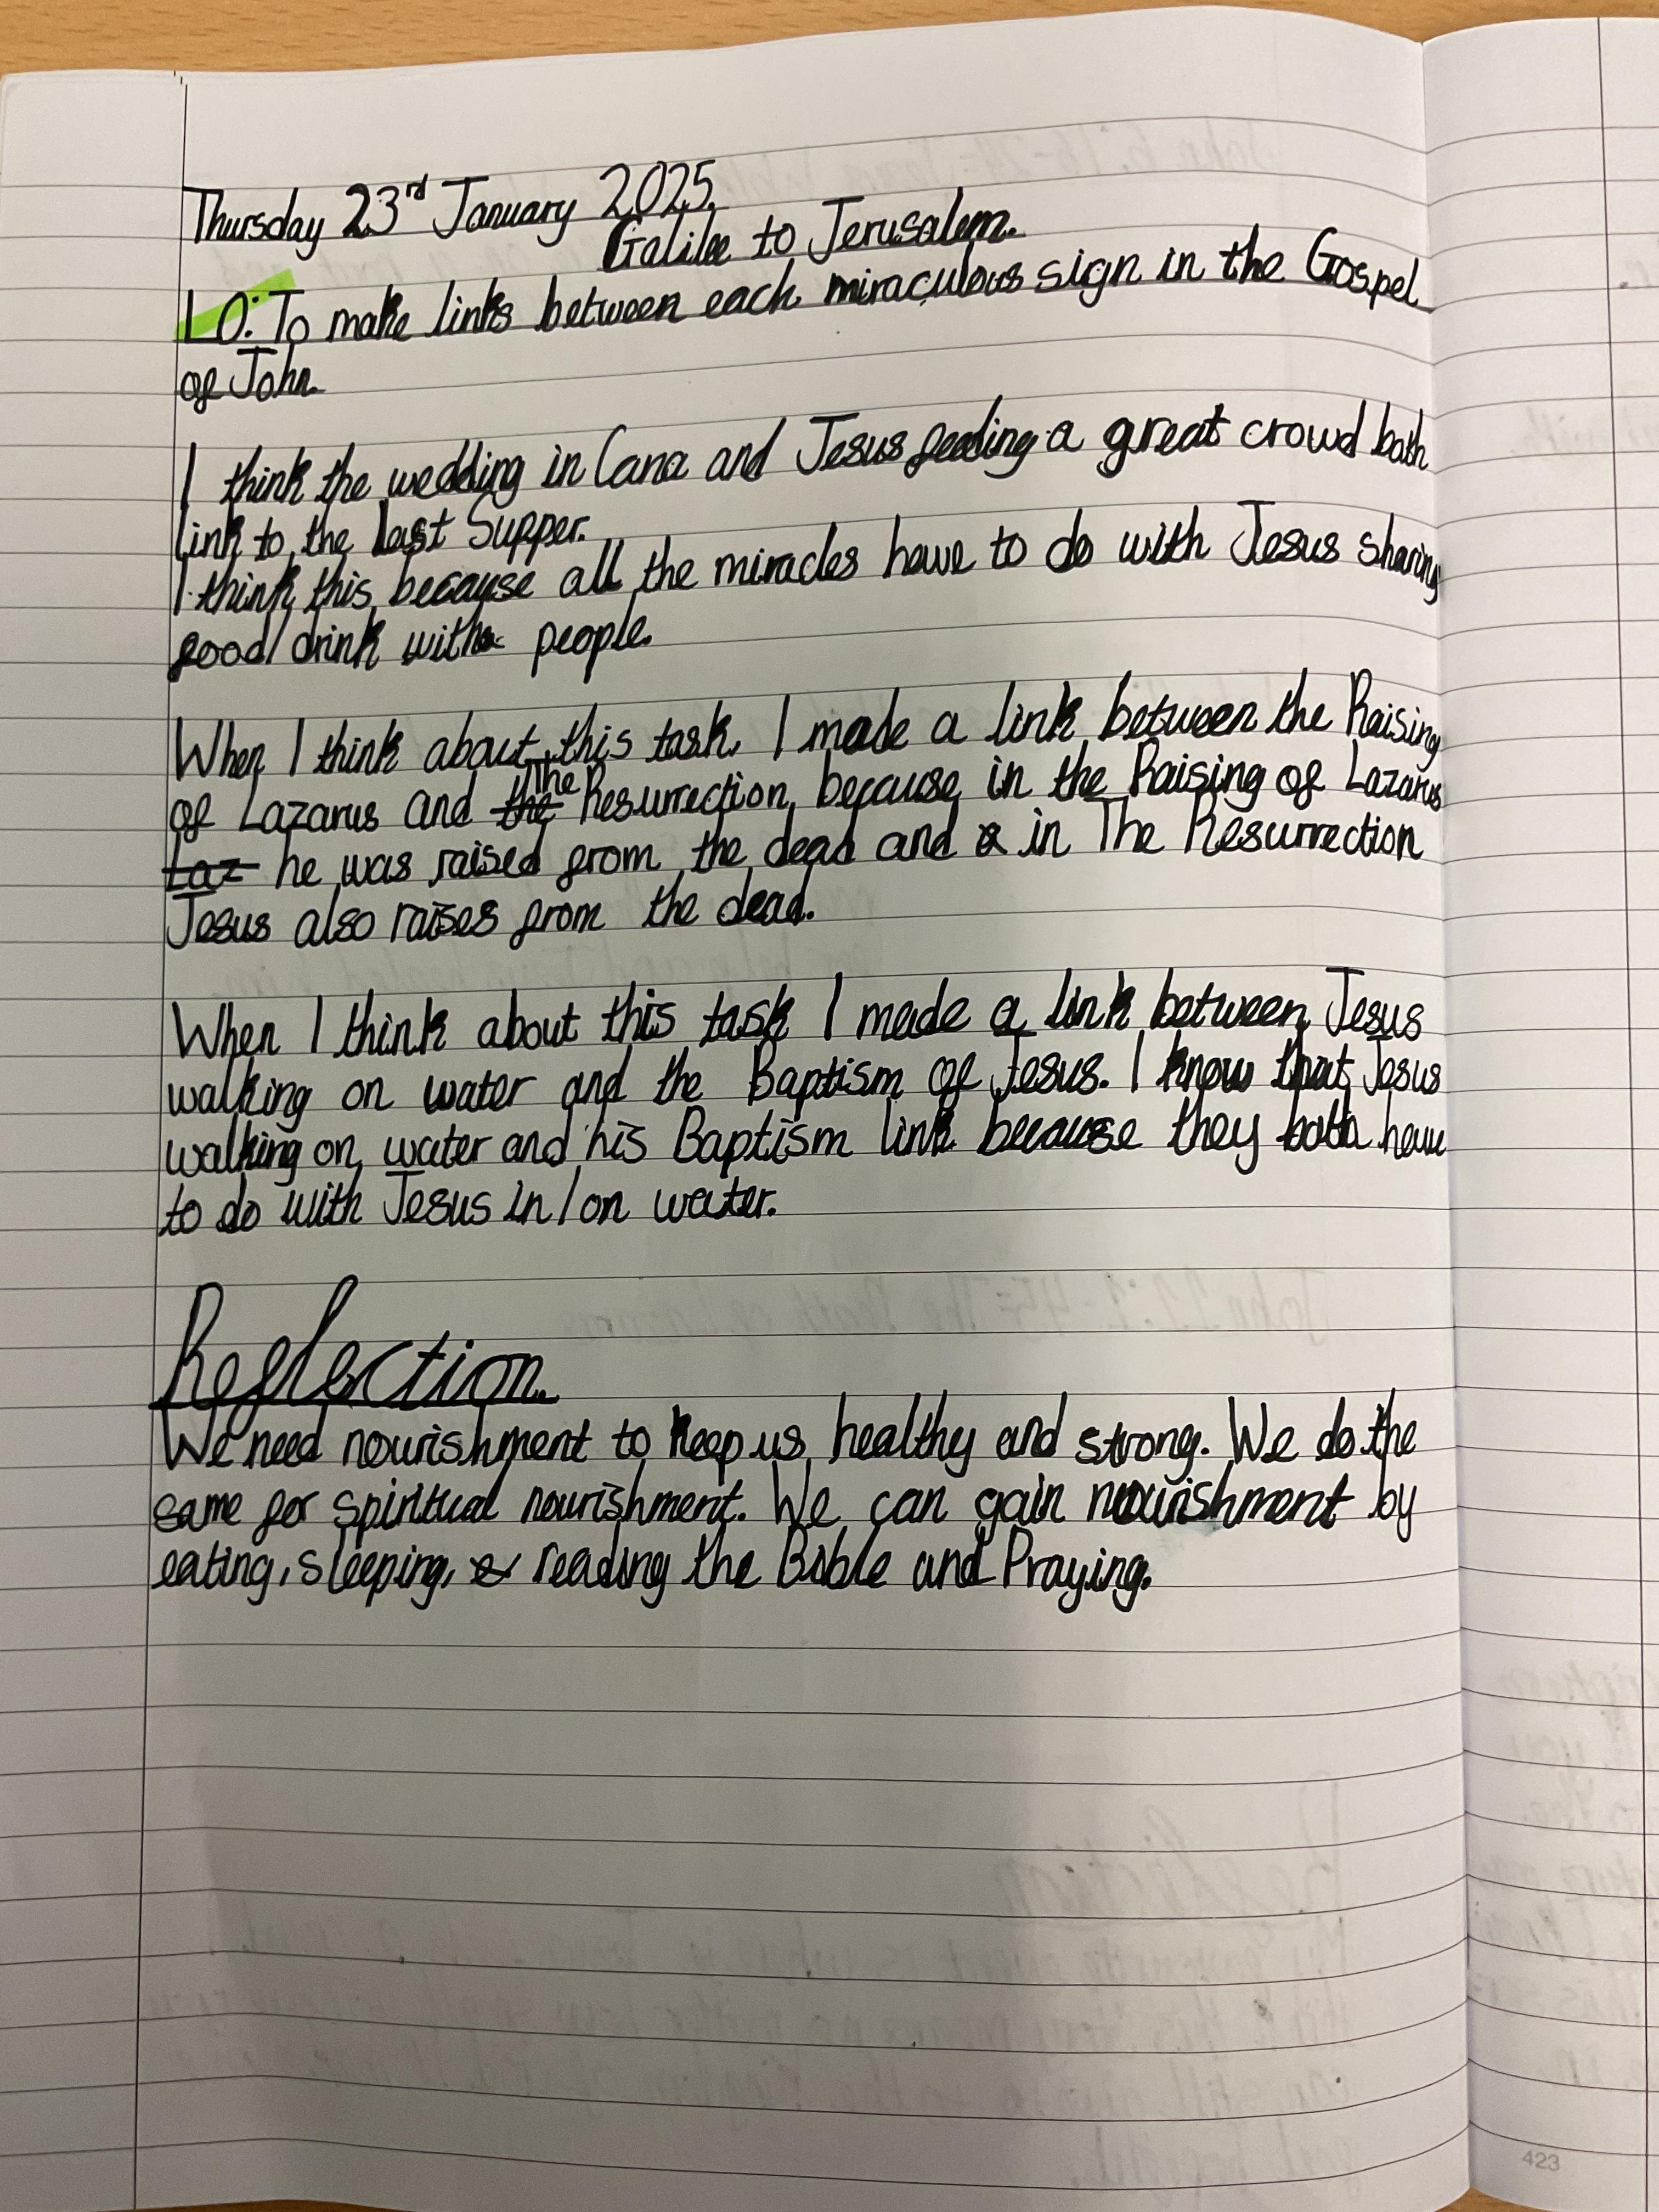 Thursday 23rd January 2025.
Galilee to Jerusalem.
LO: To make links between each miraculous sign in the Gospel
of John.
I think the wedding in Cana and Jesus feeding a great crowd both
link to the Last Supper.
I think this because all the miracles have to do with Jesus sharing
food/drink with people.
When I think about this task, I made a link between the Raising
of Lazarus and the The Resurrection, because in the Raising of Lazarus
Laz he was raised from the dead and in The Resurrection
Jesus also raises from the dead.
When I think about this task I made a link between Jesus
walking on water and the Baptism of Jesus. I know that Jesus
walking on water and his Baptism link because they both have
to do with Jesus in/on water.
Reflection.
We need nourishment to keep us healthy and strong. We do the
same for spiritual nourishment. We can gain nourishment by
eating, sleeping, reading the Bible and Praying.
423